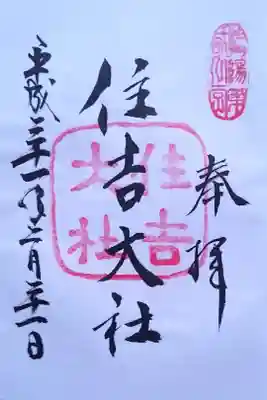 奉拝
住吉大社
住吉
大社
平成三十一年二月二十一日